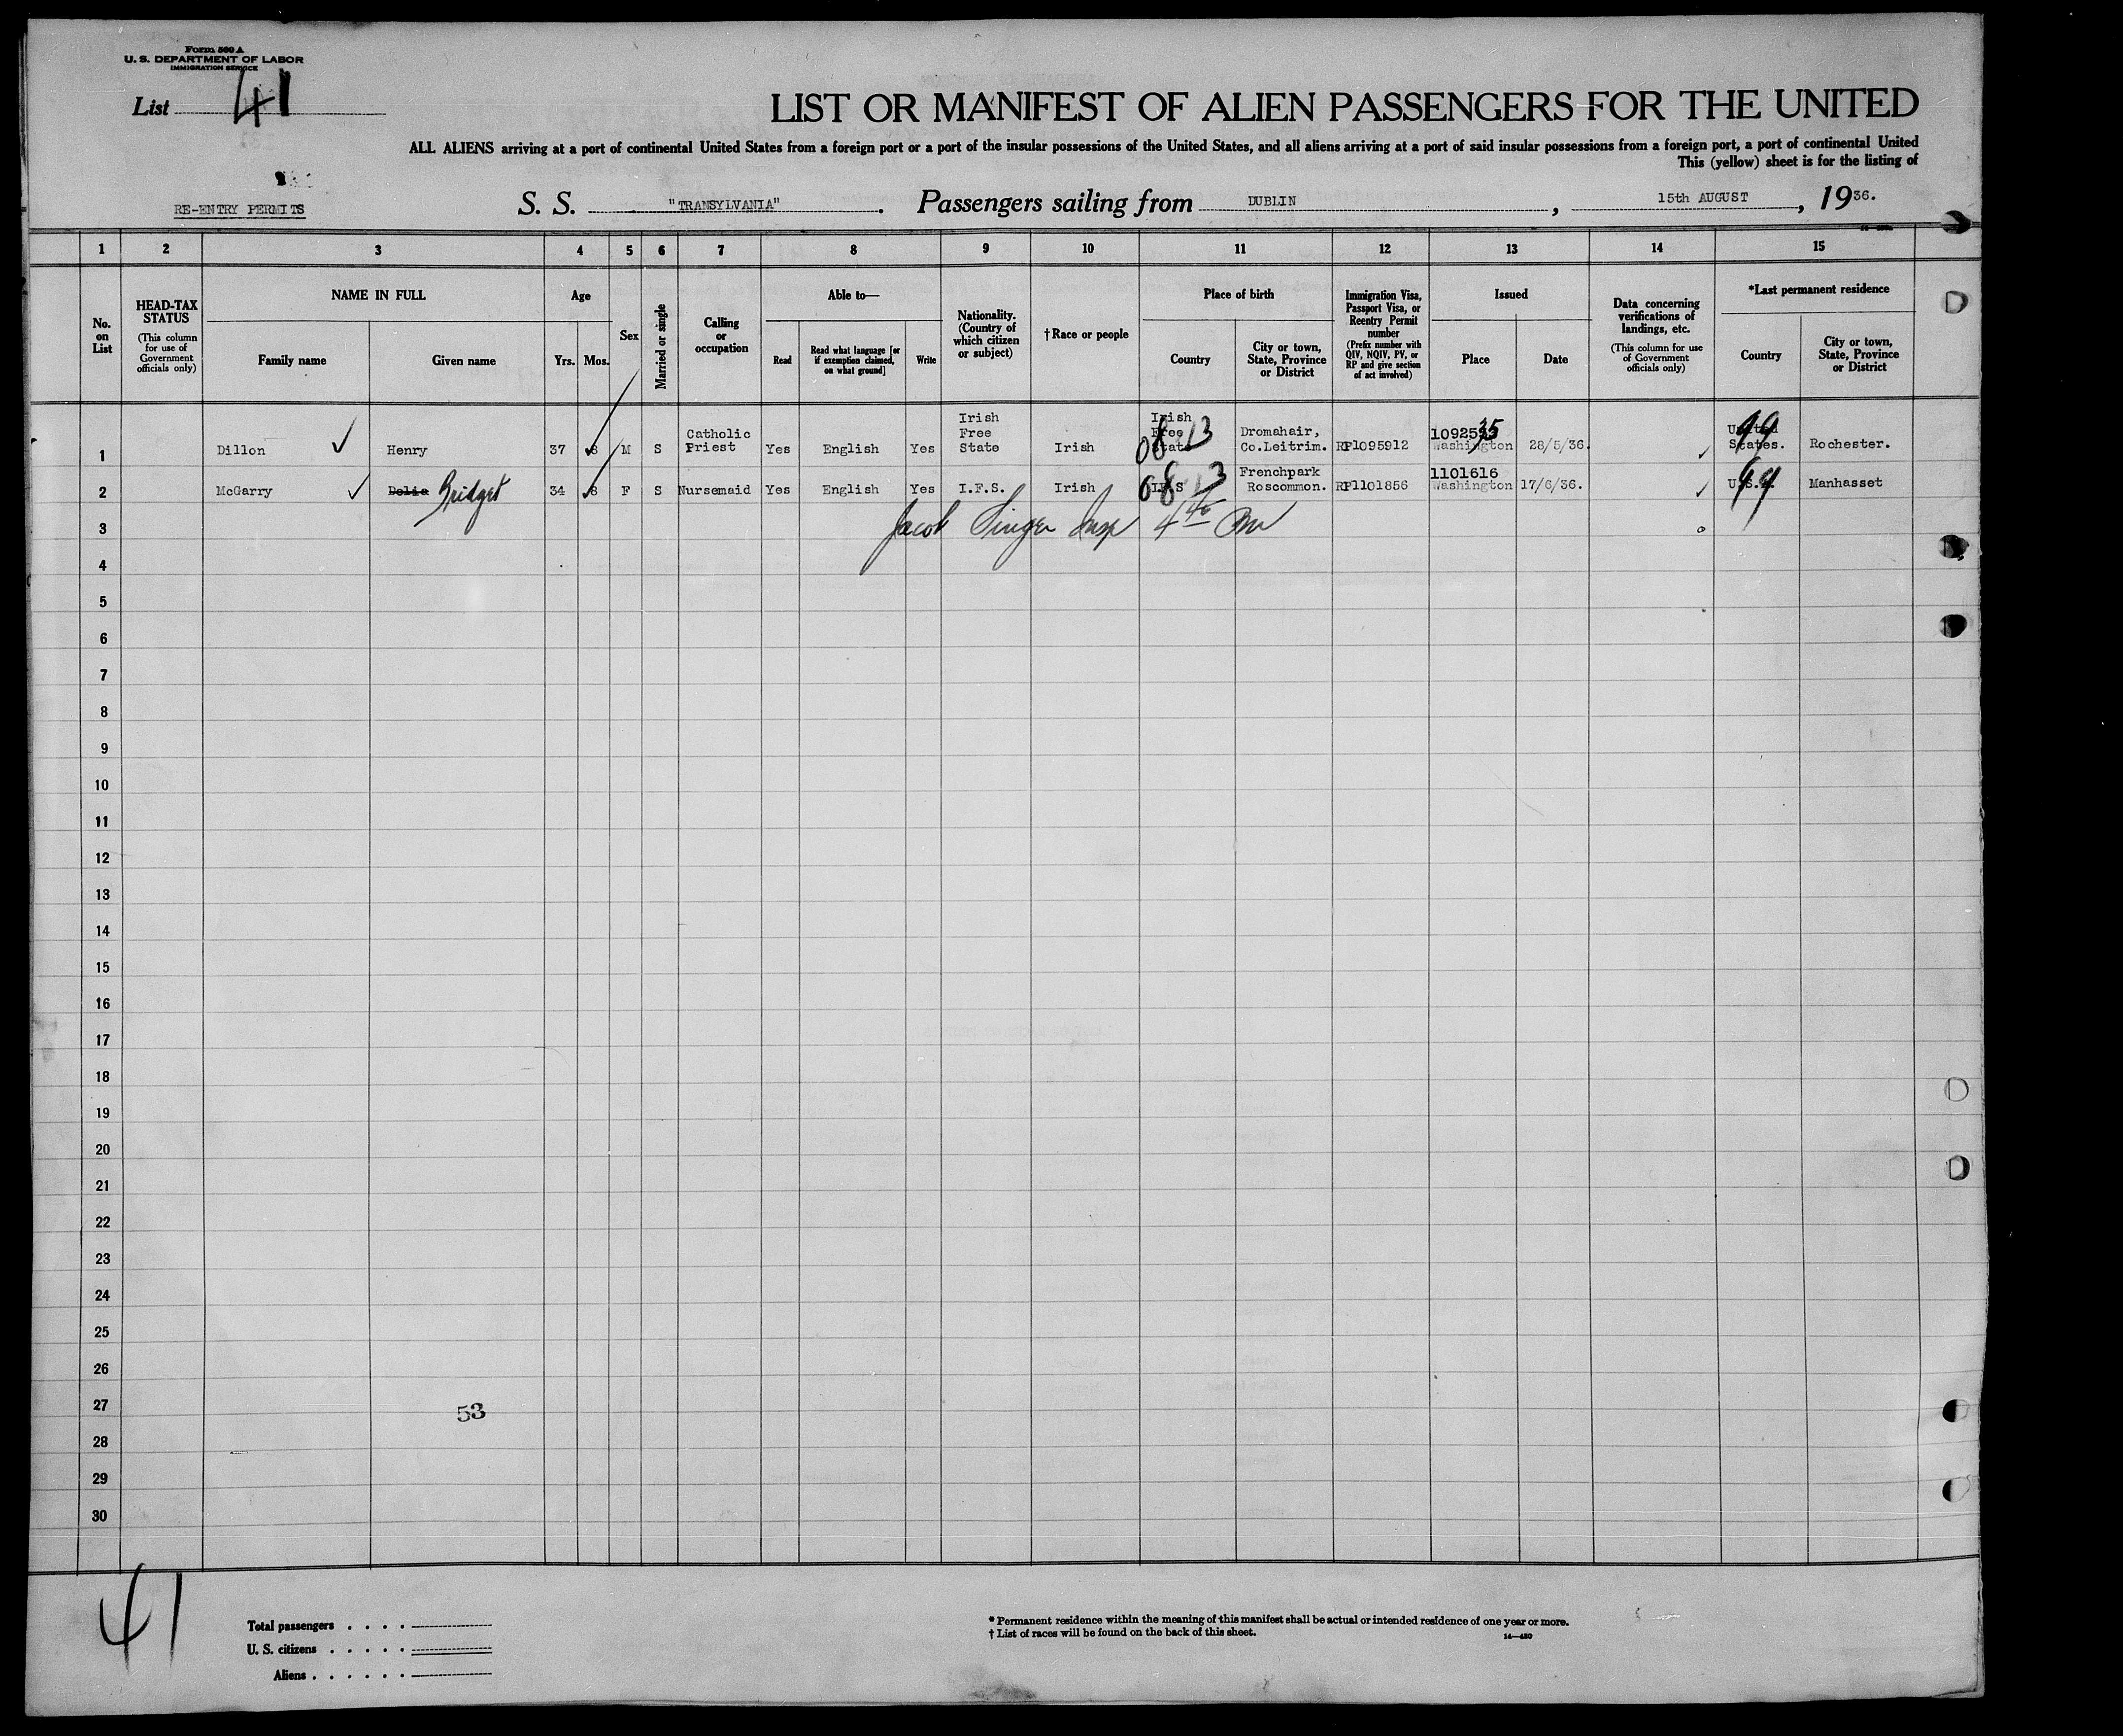 Form 500 A
U. S. DEPARTMENT OF LABOR
IMMIGRATION SERVICE
List 41
LIST OR MANIFEST OF ALIEN PASSENGERS FOR THE UNITED
ALL ALIENS arriving at a port of continental United States from a foreign port or a port of the insular possessions of the United States, and all aliens arriving at a port of said insular possessions from a foreign port, a port of continental United
This (yellow) sheet is for the listing of
RE-ENTRY PERMITS
S. S. "TRANSYLVANIA". Passengers sailing from DUBLIN, 15th AUGUST, 1936.
1 2 3 4 5 6 7 8 9 10 11 12 13 14 15
No. on List
HEAD-TAX STATUS
(This column for use of Government officials only)
NAME IN FULL
Family name
Given name
Age
Yrs. Mos.
Sex
Married or single
Calling or occupation
Able to—
Read
Read what language [or if exemption claimed, on what ground]
Write
Nationality. (Country of which citizen or subject)
† Race or people
Place of birth
Country
City or town, State, Province or District
Immigration Visa, Passport Visa, or Reentry Permit number
(Prefix number with QIV, NQIV, PV, or RP and give section of act involved)
Issued
Place
Date
Data concerning verifications of landings, etc.
(This column for use of Government officials only)
*Last permanent residence
Country
City or town, State, Province or District
1 Dillon Henry 37 8 M S Catholic Priest Yes English Yes Irish Free State Irish Irish Free State Dromahair, Co.Leitrim. RP1095912 Washington 28/5/36. United States. Rochester.
2 McGarry Delia Bridget 34 8 F S Nursemaid Yes English Yes I.F.S. Irish I.F.S Frenchpark Roscommon. RP1101856 1101616 Washington 17/6/36. U.S.A. Manhasset
3 Jacob Singer Insp
4
5
6
7
8
9
10
11
12
13
14
15
16
17
18
19
20
21
22
23
24
25
26
27
53
28
29
30
41
Total passengers . . . .
U. S. citizens . . . . .
Aliens . . . . . .
* Permanent residence within the meaning of this manifest shall be actual or intended residence of one year or more.
† List of races will be found on the back of this sheet.
14—430